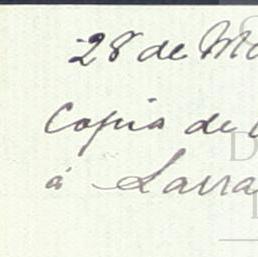 28 de Ma
Copia de
á Larra